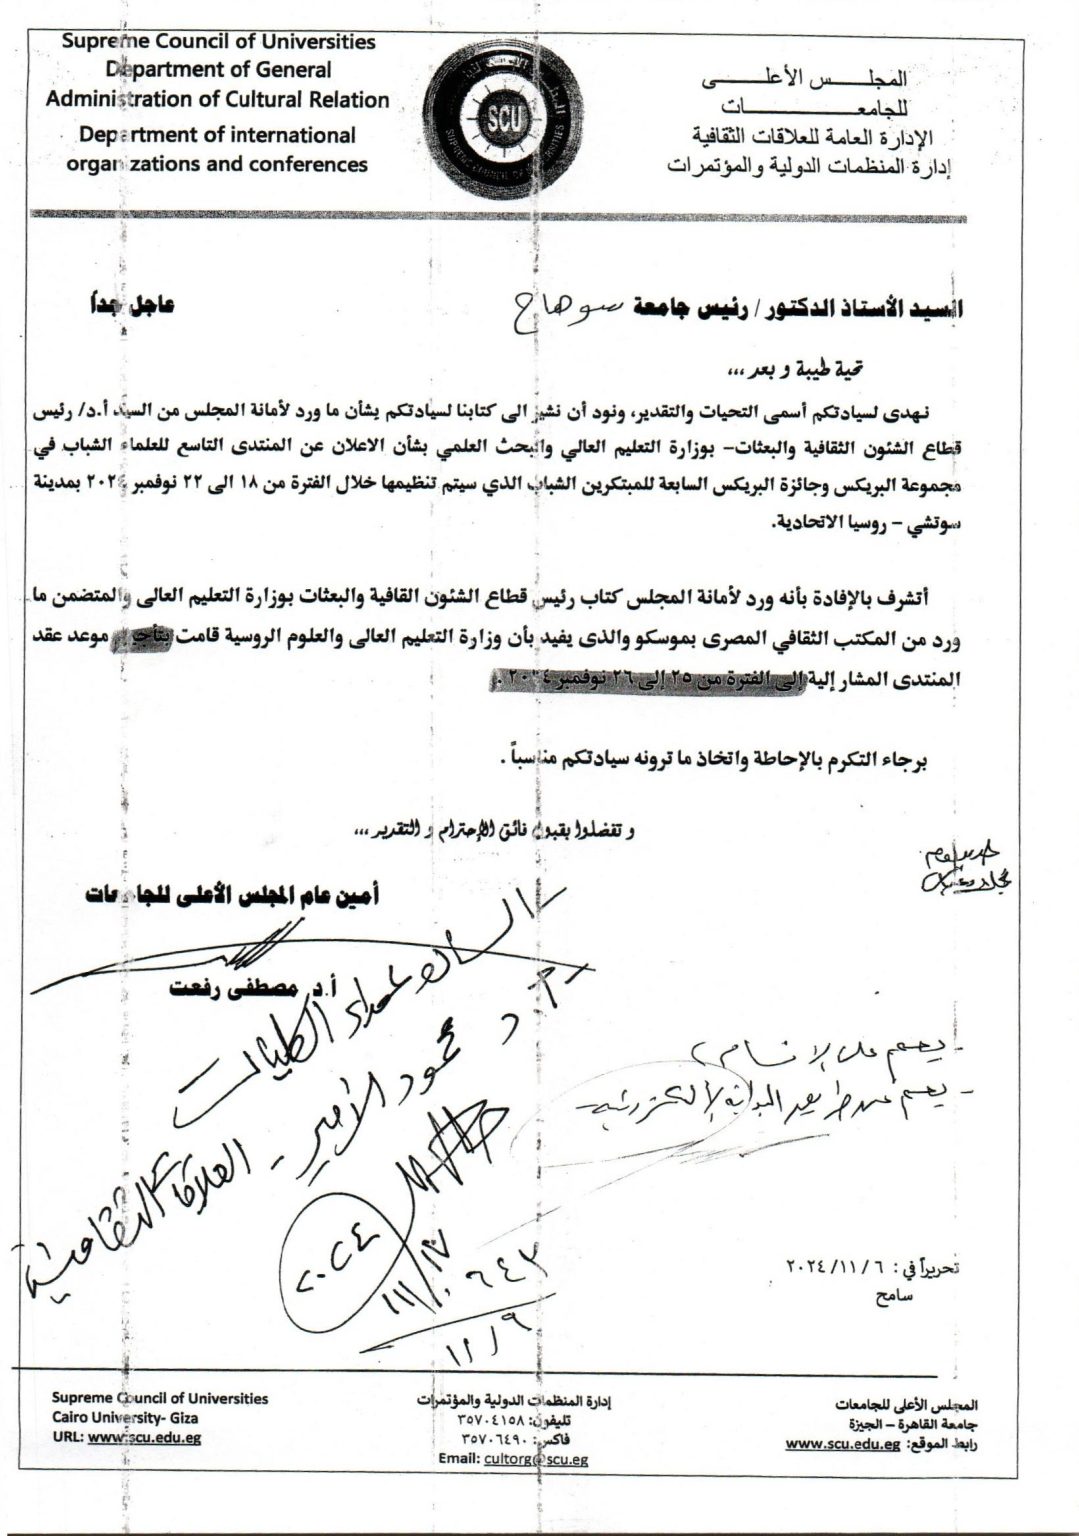 Supreme Council of Universities
Department of General
Administration of Cultural Relation
Department of international
organizations and conferences
SCU
SUPREME COUNCIL OF UNIVERSITIES
المجلس الأعلى
للجامعات
الإدارة العامة للعلاقات الثقافية
إدارة المنظمات الدولية والمؤتمرات
السيد الأستاذ الدكتور / رئيس جامعة سوهاج
عاجل جداً
تحية طيبة و بعد ,,,
نهدى لسيادتكم أسمى التحيات والتقدير، ونود أن نشير الى كتابنا لسيادتكم بشأن ما ورد لأمانة المجلس من السيد أ.د/ رئيس
قطاع الشئون الثقافية والبعثات– بوزارة التعليم العالي والبحث العلمي بشأن الاعلان عن المنتدى التاسع للعلماء الشباب في
مجموعة البريكس وجائزة البريكس السابعة للمبتكرين الشباب الذي سيتم تنظيمها خلال الفترة من ١٨ الى ٢٢ نوفمبر ٢٠٢٤ بمدينة
سوتشي – روسيا الاتحادية.
أتشرف بالإفادة بأنه ورد لأمانة المجلس كتاب رئيس قطاع الشئون القافية والبعثات بوزارة التعليم العالى والمتضمن ما
ورد من المكتب الثقافي المصرى بموسكو والذى يفيد بأن وزارة التعليم العالى والعلوم الروسية قامت بتأجيل موعد عقد
المنتدى المشار إلية إلى الفترة من ٢٥ إلى ٢٦ نوفمبر ٢٠٢٤ .
برجاء التكرم بالإحاطة واتخاذ ما ترونه سيادتكم مناسباً .
و تفضلوا بقبول فائق الإحترام و التقدير ,,,
أمين عام المجلس الأعلى للجامعات
أ.د مصطفى رفعت
السادة عمداء الكليات
أ.د محمود الأمير - العلاقات الثقافية
- يعمم على الأقسام
- يعمم عن طريق البوابة الإلكترونية
٢٠٢٤
١١/١٧
١٠٦٤٣
١١/٩
تحريراً في : ٦ /١١ /٢٠٢٤
سامح
Supreme Council of Universities
Cairo University- Giza
URL: www.scu.edu.eg
إدارة المنظمات الدولية والمؤتمرات
تليفون: ٣٥٧٠٤١٥٨
فاكس: ٣٥٧٠٦٤٩٠
Email: cultorg@scu.eg
المجلس الأعلى للجامعات
جامعة القاهرة – الجيزة
رابط الموقع: www.scu.edu.eg